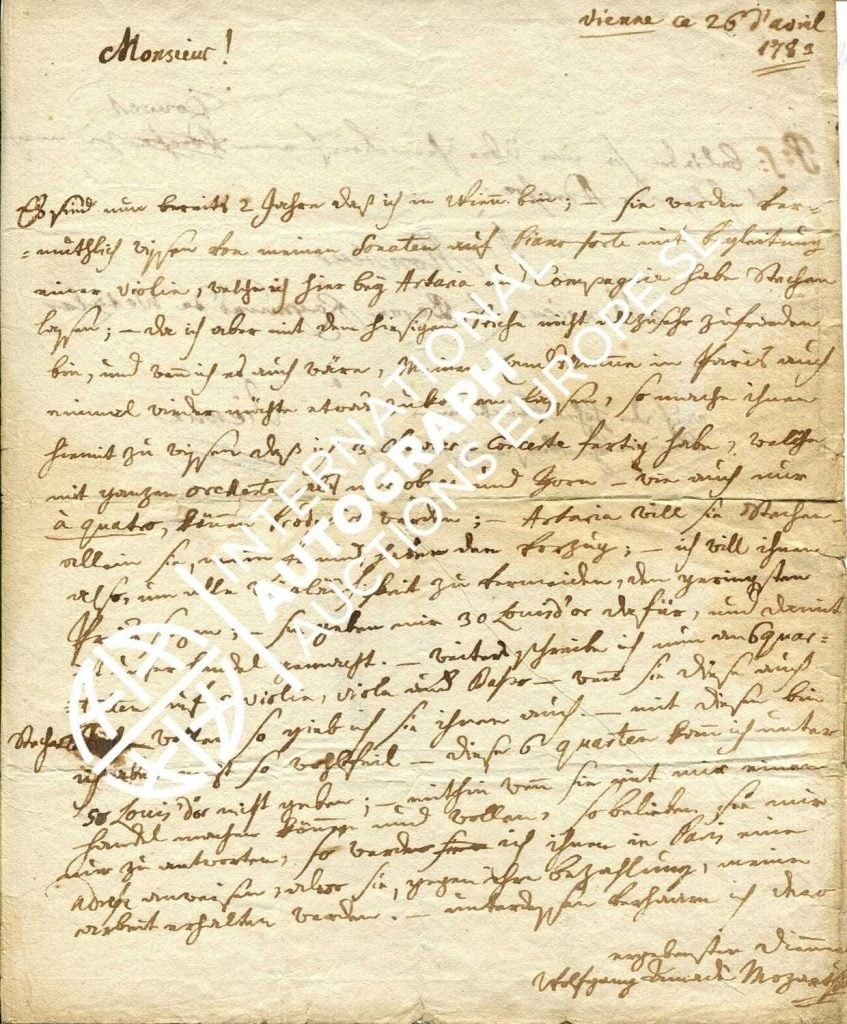 vienne ce 26 d'avril
1783
Monsieur!
Es sind nun bereits 2 Jahre daß ich in Wienn bin; – sie werden ver=
=muthlich wissen von meinen Sonaten auf Piano forte mit begleitung
einer violin, welche ich hier bey Artaria und Compagnie habe Stechen
lassen; – da ich aber mit dem hiesigen Stiche nicht allzusehr zufrieden
bin, und wenn ich es auch wäre, Meinen landsmann in Paris auch
einmal wieder möchte etwas zukommen lassen, so mache ihnen
hiemit zu wissen daß ich 3 Clavier-Concerte fertig habe, welche
mit ganzen orchester, mit oboen und Horn – wie auch nur
à quatro, können werden; – Artaria will sie Stechen.
allein sie, mein haben den vorzug; – ich will ihnen
also, um alle Weitläufigkeit zu vermeiden, den geringsten
Preis sagen; – sie geben mir 30 Louis d'or dafür, und damit
ist unser handel gemacht. – weiters schreibe ich nun an 6 quar=
=tetten auf 2 violin, viola und Baßo – wenn sie diese auch
Stechen wollen so gieb ich sie ihnen auch. – mit diesen bin
ich aber nicht so wohlfeil – diese 6 quartetten kann ich unter
50 Louis d'or nicht geben; – mithin wenn sie mit mir einen
handel machen können und wollen, so belieben sie mir
nur zu antworten, so werde ich ihnen in Paris eine
adresse anweisen, alwo sie, gegen ihre bezahlung, meine
arbeit erhalten werden. – unterdessen verharre ich dero
ergebenster Diener
Wolfgang Amadè Mozart
INTERNATIONAL
AUTOGRAPH
AUCTIONS EUROPE SL